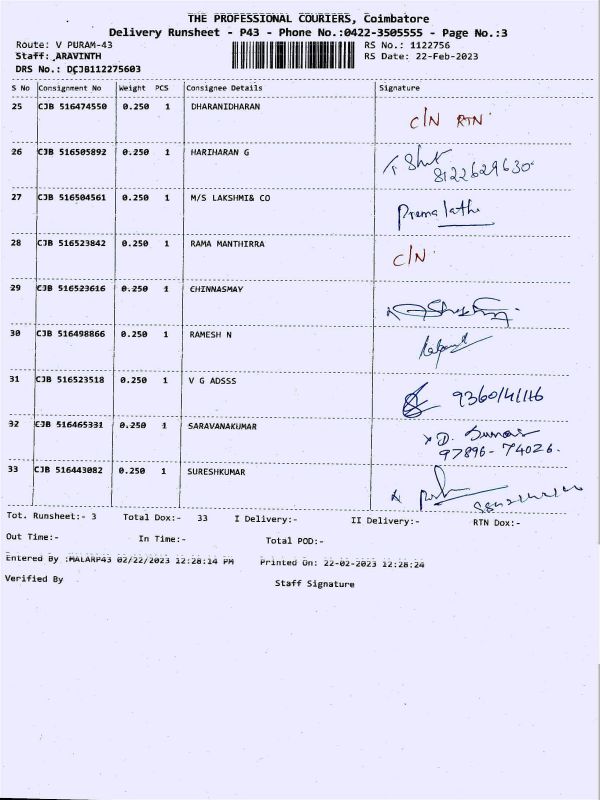 THE PROFESSIONAL COURIERS, Coimbatore
Delivery Runsheet - P43 - Phone No.:0422-3505555 - Page No.:3
Route: V PURAM-43 RS No.: 1122756
Staff: ARAVINTH RS Date: 22-Feb-2023
DRS No.: DCJB112275603
S No Consignment No Weight PCS Consignee Details Signature
25 CJB 516474550 0.250 1 DHARANIDHARAN C/N RTN
26 CJB 516505892 0.250 1 HARIHARAN G
8122629630
27 CJB 516504561 0.250 1 M/S LAKSHMI& CO Premalatha
28 CJB 516523842 0.250 1 RAMA MANTHIRRA C/N
29 CJB 516523616 0.250 1 CHINNASMAY
30 CJB 516498866 0.250 1 RAMESH N
31 CJB 516523518 0.250 1 V G ADSSS
32 CJB 516465331 0.250 1 SARAVANAKUMAR
97896-74026.
33 CJB 516443082 0.250 1 SURESHKUMAR
Tot. Runsheet:- 3 Total Dox:- 33 I Delivery:- II Delivery:- RTN Dox:-
Out Time:- In Time:- Total POD:-
Entered By :MALARP43 02/22/2023 12:28:14 PM Printed On: 22-02-2023 12:28:24
Verified By Staff Signature